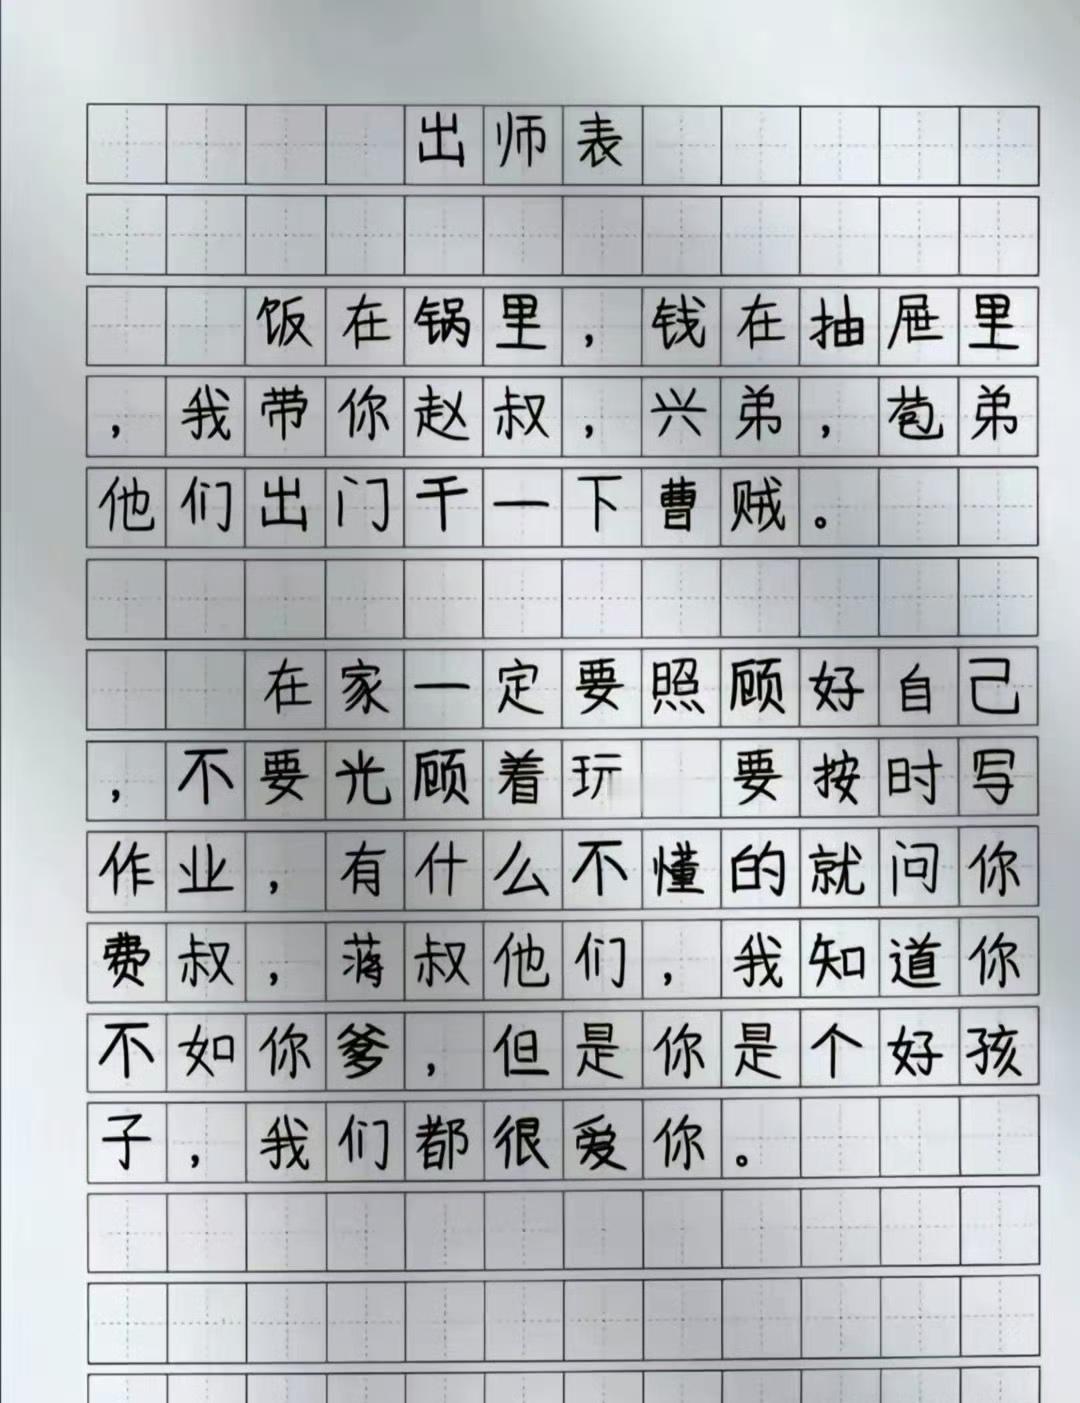 出师表
饭在锅里，钱在抽屉里
，我带你赵叔，兴弟，苞弟
他们出门干一下曹贼。
在家一定要照顾好自己
，不要光顾着玩 要按时写
作业，有什么不懂的就问你
费叔，蒋叔他们，我知道你
不如你爹，但是你是个好孩
子，我们都很爱你。